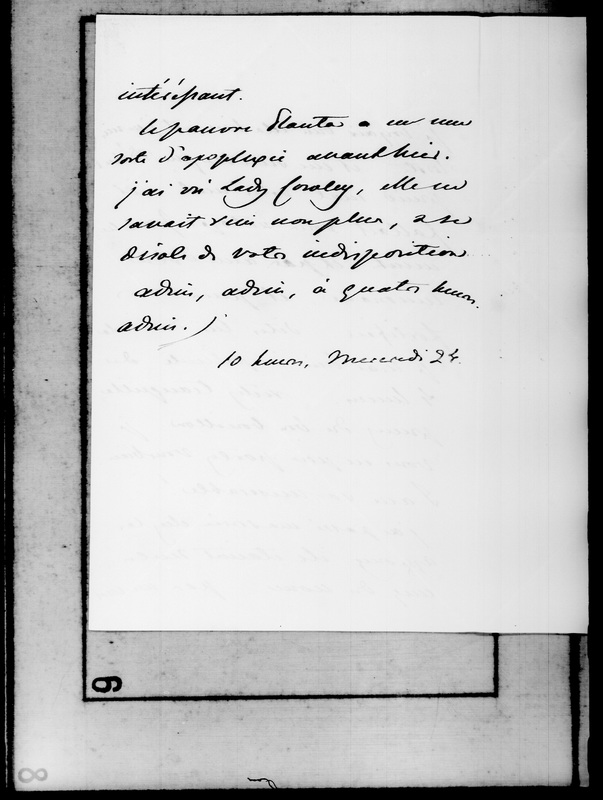 intéressant.
le pauvre Plantes a eu une
sorte d'apoplexie avanthier.
j'ai vu Lady Cowley, elle ne
savait rien non plus, & se
désole de votre indisposition
adieu, adieu, à quatre heures.
adieu. /
10 heures, Mercredi 24.
6
8